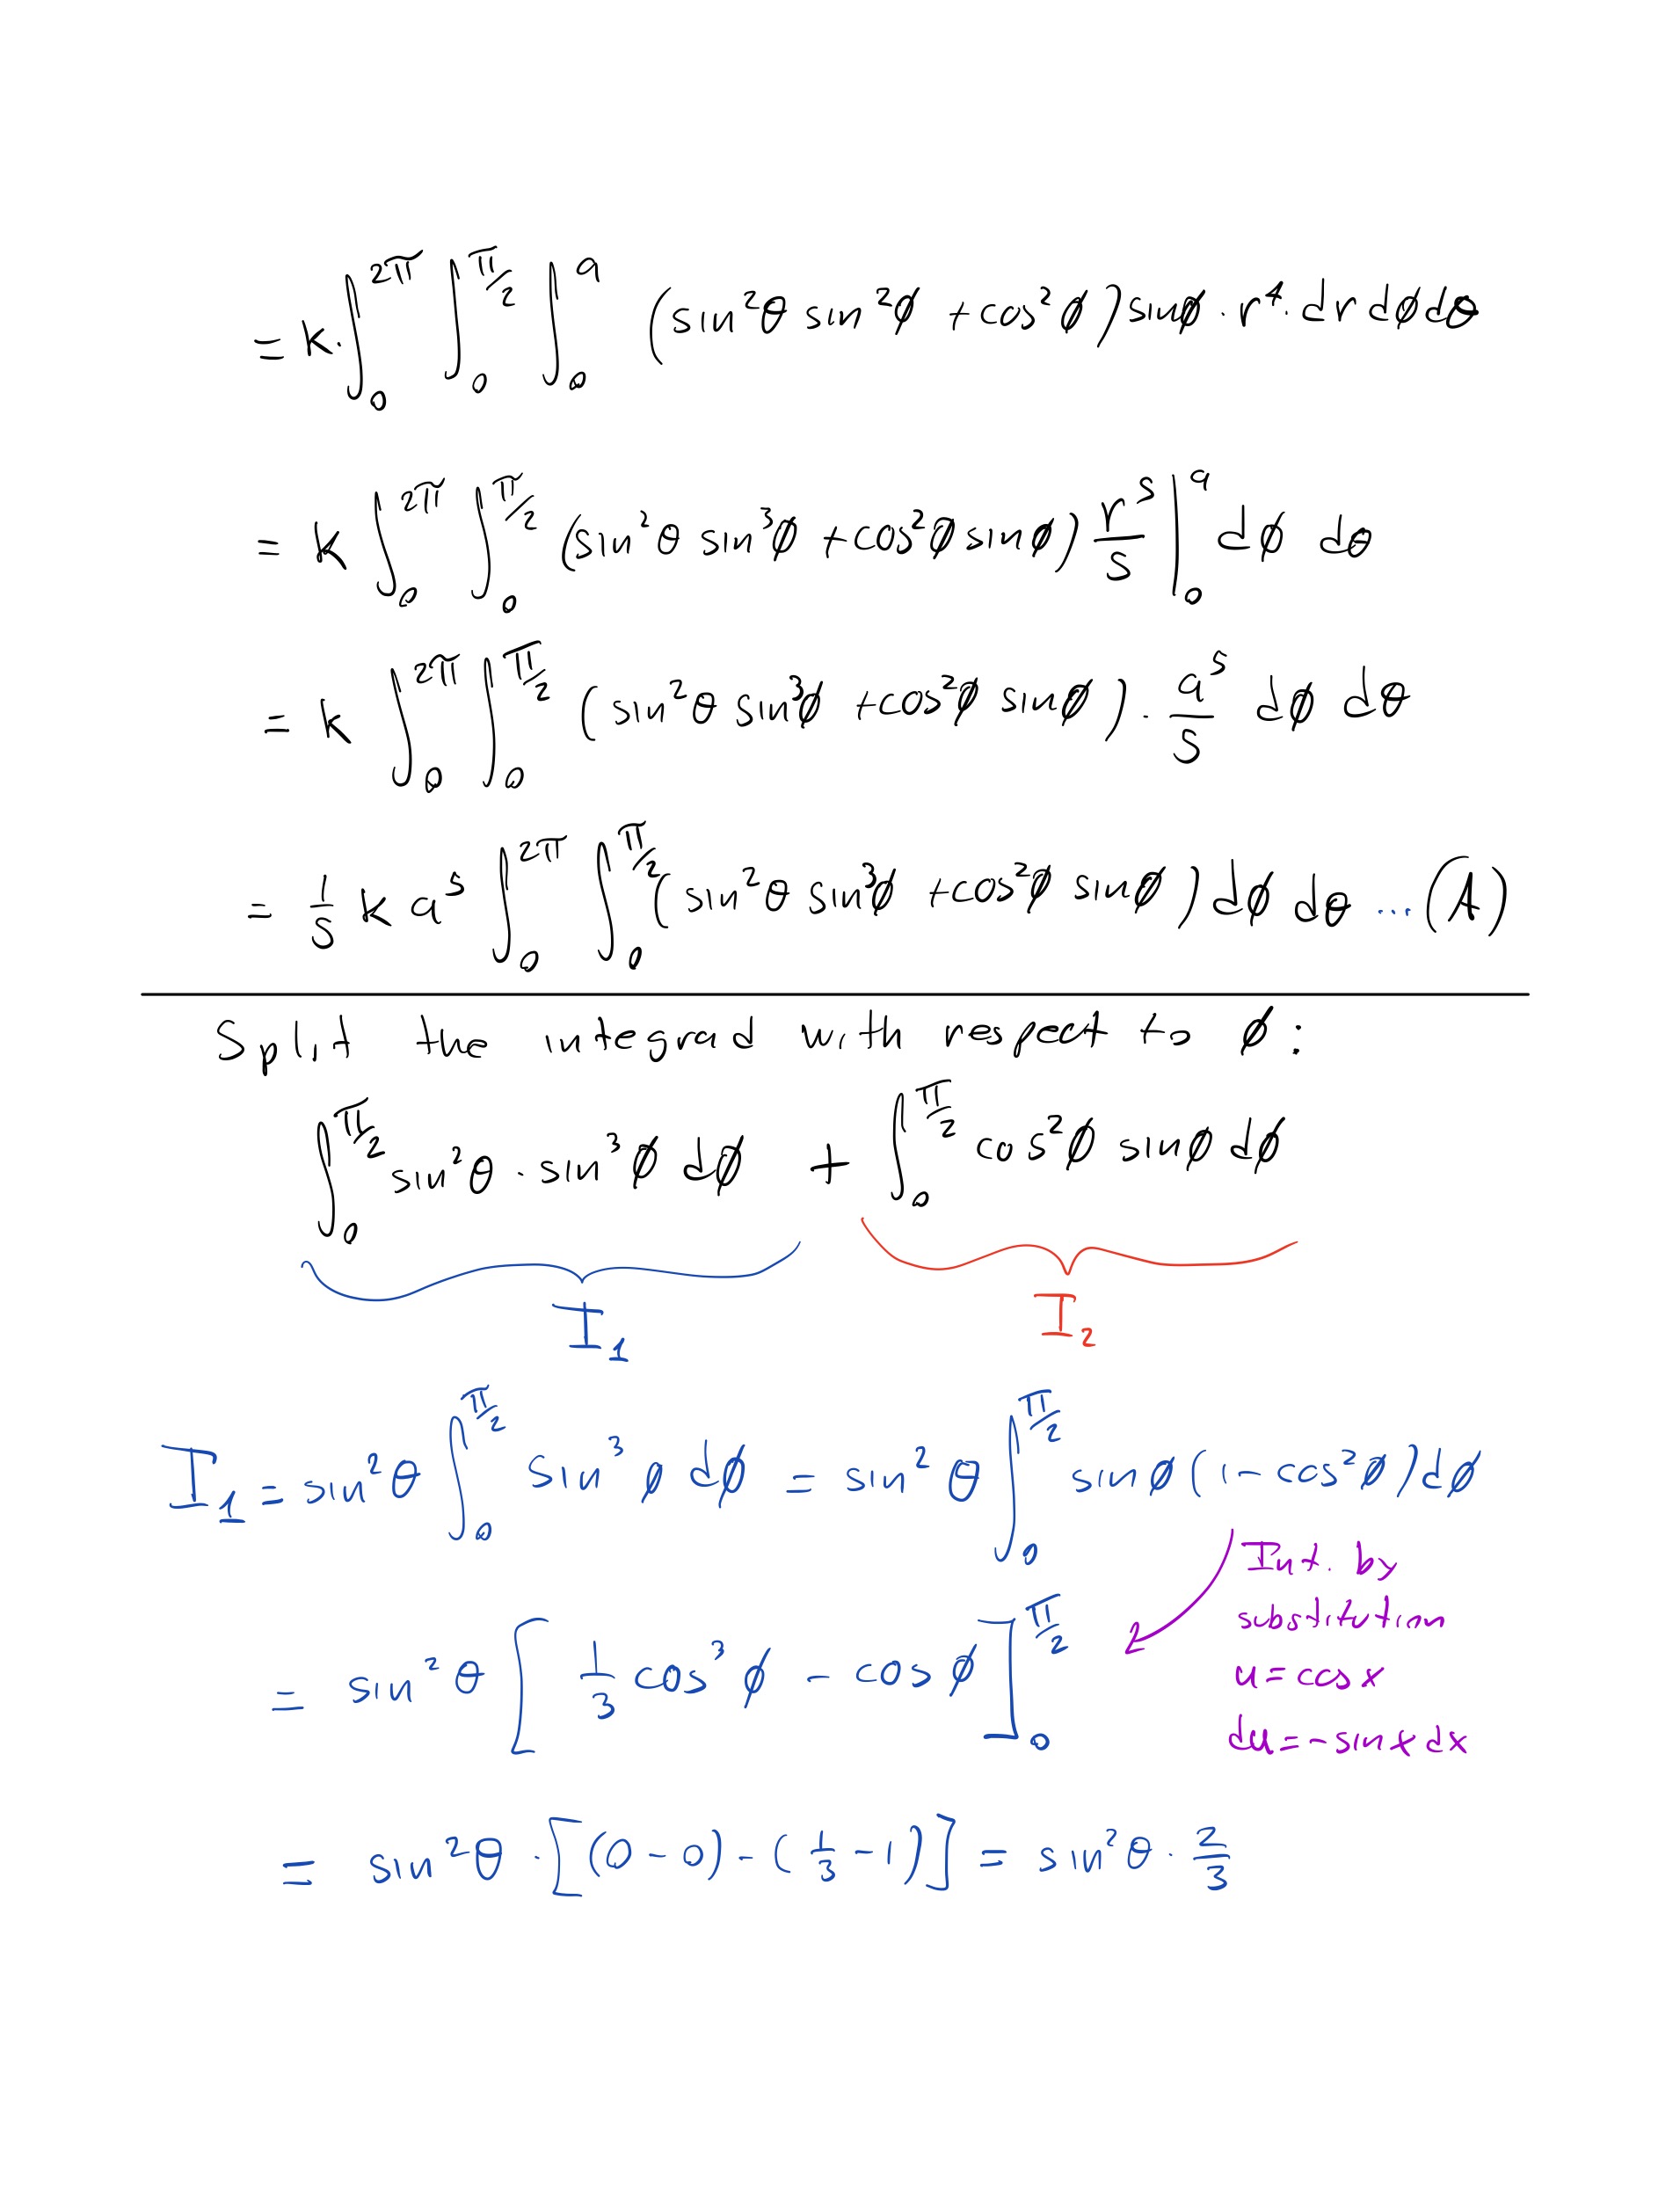 = k·∫₀^{2π} ∫₀^{π/2} ∫₀^a (sin²θ sin²φ + cos²φ) sinφ · r⁴ · dr dφ dθ
= k ∫₀^{2π} ∫₀^{π/2} (sin²θ sin³φ + cos²φ sinφ) r⁵/5 |₀^a dφ dθ
= k ∫₀^{2π} ∫₀^{π/2} (sin²θ sin³φ + cos²φ sinφ) · a⁵/5 dφ dθ
= 1/5 k a⁵ ∫₀^{2π} ∫₀^{π/2} (sin²θ sin³φ + cos²φ sinφ) dφ dθ ... (A)
Split the integrad with respect to φ:
∫₀^{π/2} sin²θ · sin³φ dφ + ∫₀^{π/2} cos²φ sinφ dφ
I₁ I₂
I₁ = sin²θ ∫₀^{π/2} sin³φ dφ = sin²θ ∫₀^{π/2} sinφ (1 - cos²φ) dφ
Int. by
substitution
u = cos x
du = - sin x dx
= sin²θ [1/3 cos³φ - cosφ]₀^{π/2}
= sin²θ · [(0 - 0) - (1/3 - 1)] = sin²θ · 2/3